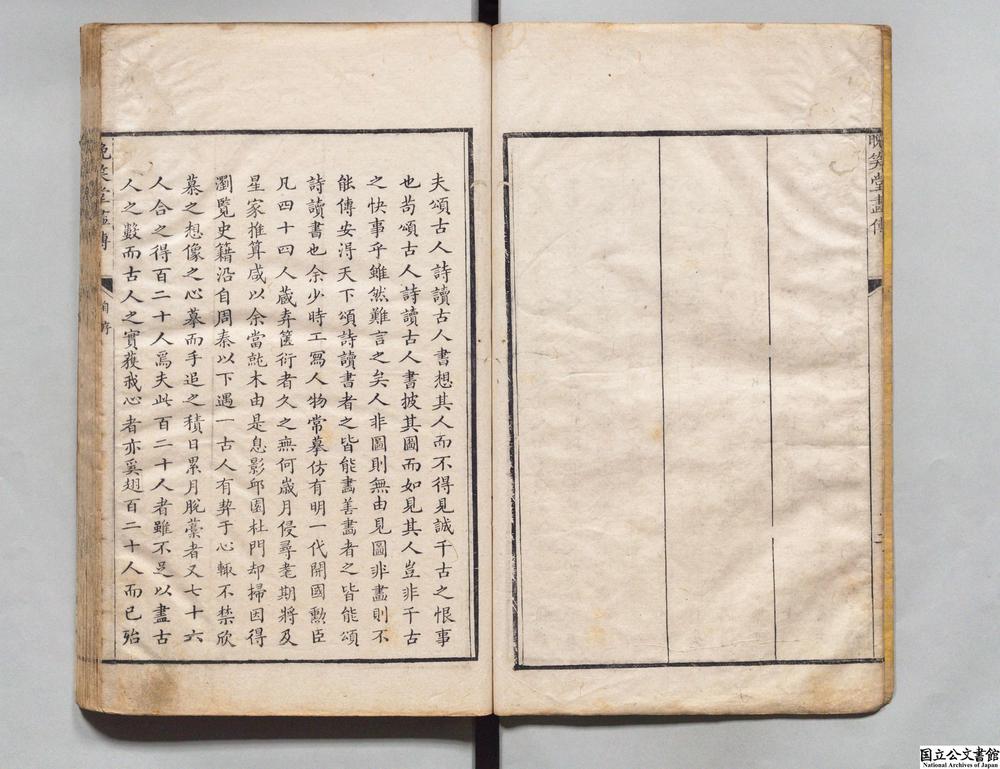 晩笑堂畫傳
夫頌古人詩讀古人書想其人而不得見誠千古之恨事
也茍頌古人詩讀古人書披其圖而如見其人豈非千古
之快事乎雖然難言之矣人非圖則無由見圖非畫則不
能傳安淂天下頌詩讀書者之皆能畫善畫者之皆能頌
詩讀書也余少時工寫人物常摹仿有明一代開國勲臣
凡四十四人蔵弆篋衍者久之無何歳月侵尋耄期將及
星家推算咸以余當就木由是息影邱園杜門却掃因得
瀏覧史籍沿自周秦以下遇一古人有契于心輒不禁欣
慕之想像之心摹而手追之積日累月脫藳者又七十六
人合之得百二十人爲夫此百二十人者雖不足以盡古
人之數而古人之實獲我心者亦奚翅百二十人而已殆
晩笑堂畫傳
自序
国立公文書館
National Archives of Japan